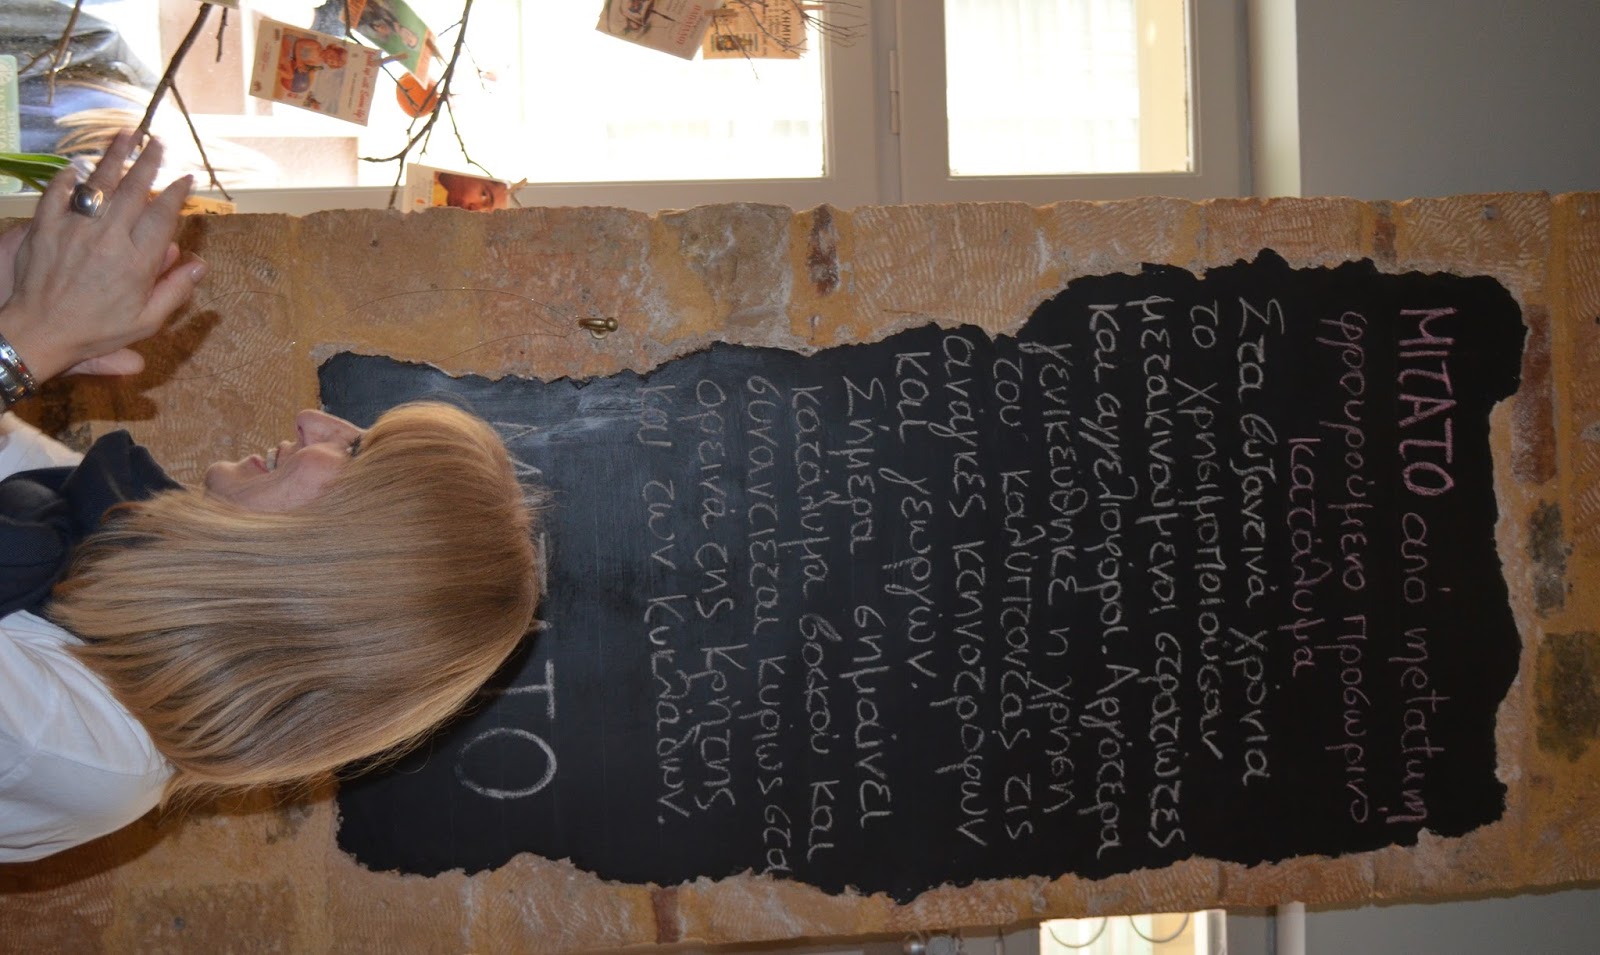 ΜΙΤΑΤΟ από metatum
φρουρούμενο προσωρινό
κατάλυμα
Στα βυζαντινά χρόνια
το χρησιμοποιούσαν
μετακινούμενοι στρατιώτες
και αγγελιοφόροι. Αργότερα
γενικεύθηκε η χρήση
του καλύπτοντας τις
ανάγκες κτηνοτρόφων
και γεωργών.
Σήμερα σημαίνει
κατάλυμα βοσκού και
συναντιέται κυρίως στα
ορεινά της Κρήτης
και των Κυκλάδων.
ΤΟ